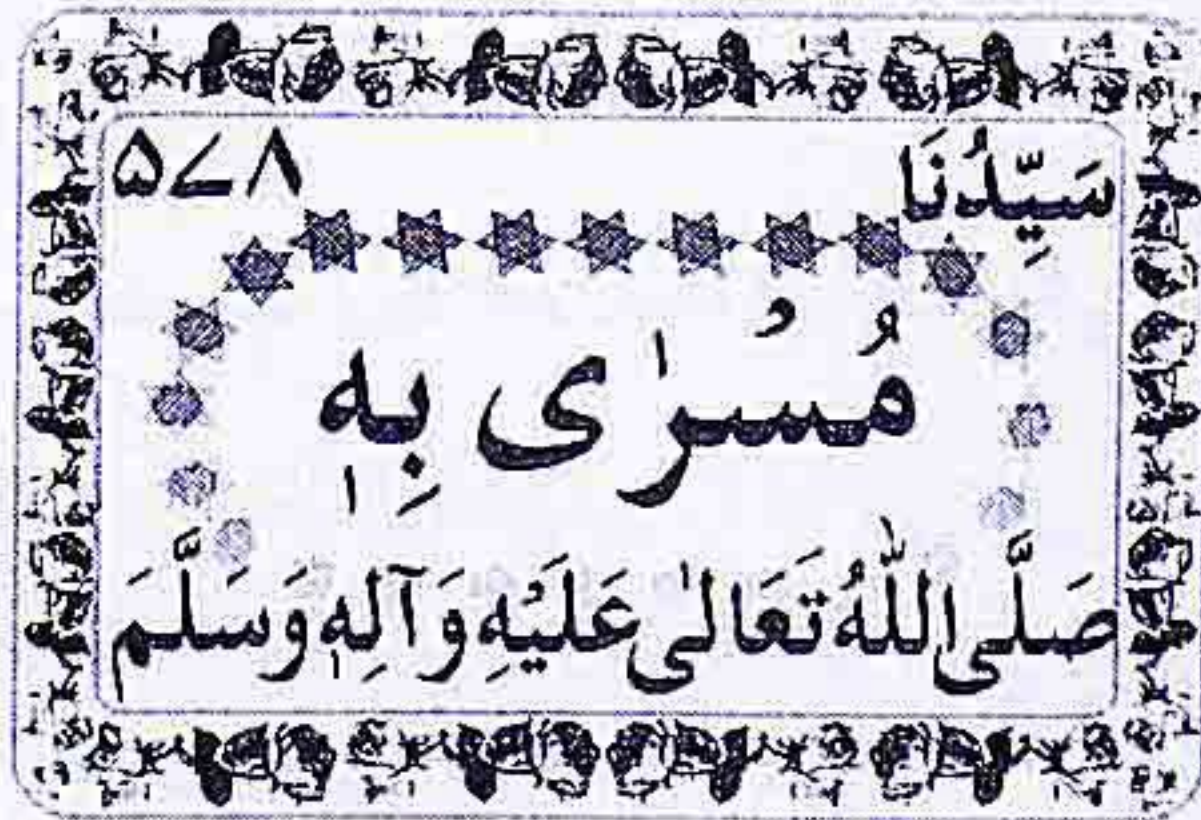 سَيِّدُنَا ۵۷۸
مُسْرٰى بِهٖ
صَلَّى اللّٰهُ تَعَالٰى عَلَيْهِ وَآلِهٖ وَسَلَّمَ